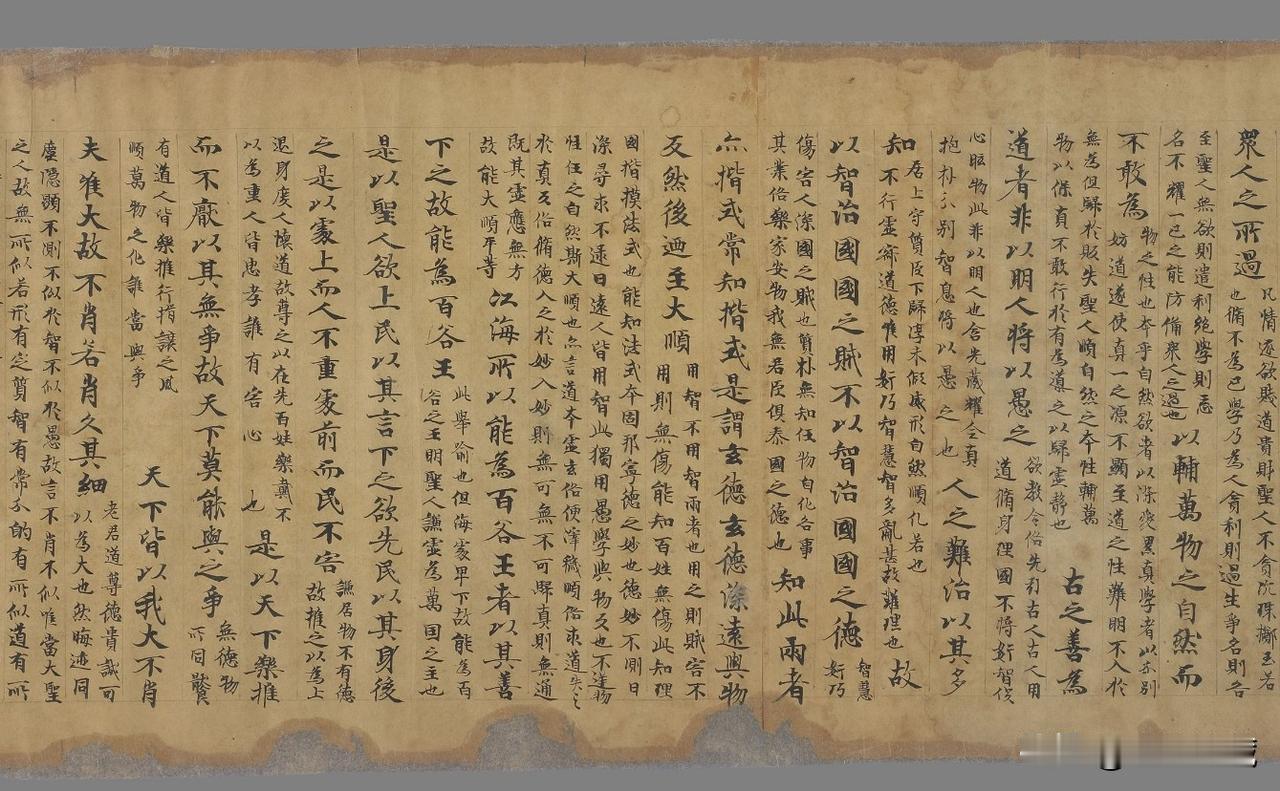 衆人之所過
凡情逐欲賎道貴財聖人不貪阮珠擲玉若
也脩不為己學乃為人貪利則過生爭名則各
至聖人無欲則遣利絶學則忘
名不耀一己之能防備衆人之過也
以輔萬物之自然而
不敢為
物之性也本乎自然欲者以染愛累真學者以分別
妨道遂使真一之源不顯至道之性難明不入於
無為但歸於敗失聖人順自然之本性輔萬
物以保真不敢行於有為導之以歸靈静也
古之善為
道者非以明人將以愚之
欲教今俗先引古人古人用
道脩身理國不將姧智役
心眩物此非以明人也含光藏耀全真
抱朴分別智息將以愚之也
人之難治以其多
知
居上守質臣下歸淳未假威形自然順化若也
不行靈寂道德惟用姧巧智慧智多亂甚故難理也
故
以智治國國之賊不以智治國國之德
智慧
姧巧
傷害人深國之賊也質朴無知任物自化各事
其業俗樂家安物我無君臣俱泰國之德也
知此兩者
亦楷式常知楷式是謂玄德玄德深遠與物
反然後迺至大順
用智不用智兩者也用之則賊害不
用則無傷能知百姓無傷此知理
國楷摸法式也能知法式本固邦寧德之妙也德妙不測日
深尋求不逮日遠人皆用智此獨用愚學與物反也不違物
性任之自然斯大順也亦言道本靈玄俗使渾穢順俗求道失之
於真反俗脩德入之於妙入妙則無可無不可歸真則無通
既其靈應無方
故能大順平等
江海所以能為百谷王者以其善
下之故能為百谷王
此舉喻也但海處卑下故能為百
谷之王明聖人謙靈為萬国之主也
是以聖人欲上民以其言下之欲先民以其身後
之是以處上而人不重處前而民不害
謙居物不有德
故推之以為上
退身度人懷道故尊之以在先百姓樂戴不
以為重人皆忠孝誰有害心也
是以天下樂推
而不厭以其無爭故天下莫能與之爭
無德物
所同猒
有道人皆樂推行揖讓之風
順萬物之化誰當與爭
天下皆以我大不肖
夫唯大故不肖若肖久其細
老君道尊德貴誠可
以為大也然晦迹同
塵隱顯不測不似於智不似於愚故言不肖不似唯當大聖
之人故無所似若形有定質智有常分的有所似道有所